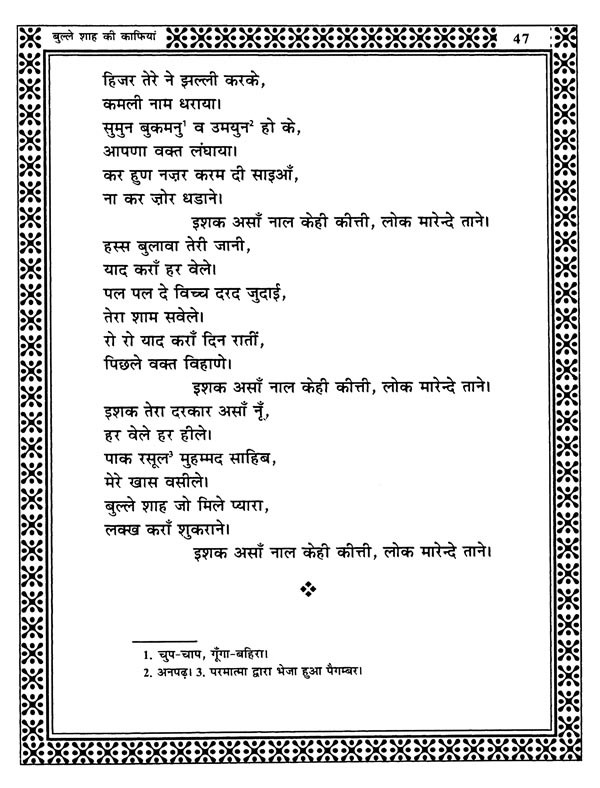 बुल्ले शाह की काफियां 47
हिजर तेरे ने झल्ली करके,
कमली नाम धराया।
सुमुन बुकमनु¹ व उमयुन² हो के,
आपणा वक्त लंघाया।
कर हुण नज़र करम दी साइआँ,
ना कर ज़ोर धडाने।
इशक असाँ नाल केही कीत्ती, लोक मारेन्दे ताने।
हस्स बुलावा तेरी जानी,
याद कराँ हर वेले।
पल पल दे विच्च दरद जुदाई,
तेरा शाम सवेले।
रो रो याद कराँ दिन रातीं,
पिछले वक्त विहाणे।
इशक असाँ नाल केही कीत्ती, लोक मारेन्दे ताने।
इशक तेरा दरकार असाँ नूँ,
हर वेले हर हीले।
पाक रसूल³ मुहम्मद साहिब,
मेरे खास वसीले।
बुल्ले शाह जो मिले प्यारा,
लक्ख कराँ शुकराने।
इशक असाँ नाल केही कीत्ती, लोक मारेन्दे ताने।
1. चुप-चाप, गूँगा-बहिरा।
2. अनपढ़। 3. परमात्मा द्वारा भेजा हुआ पैगम्बर।